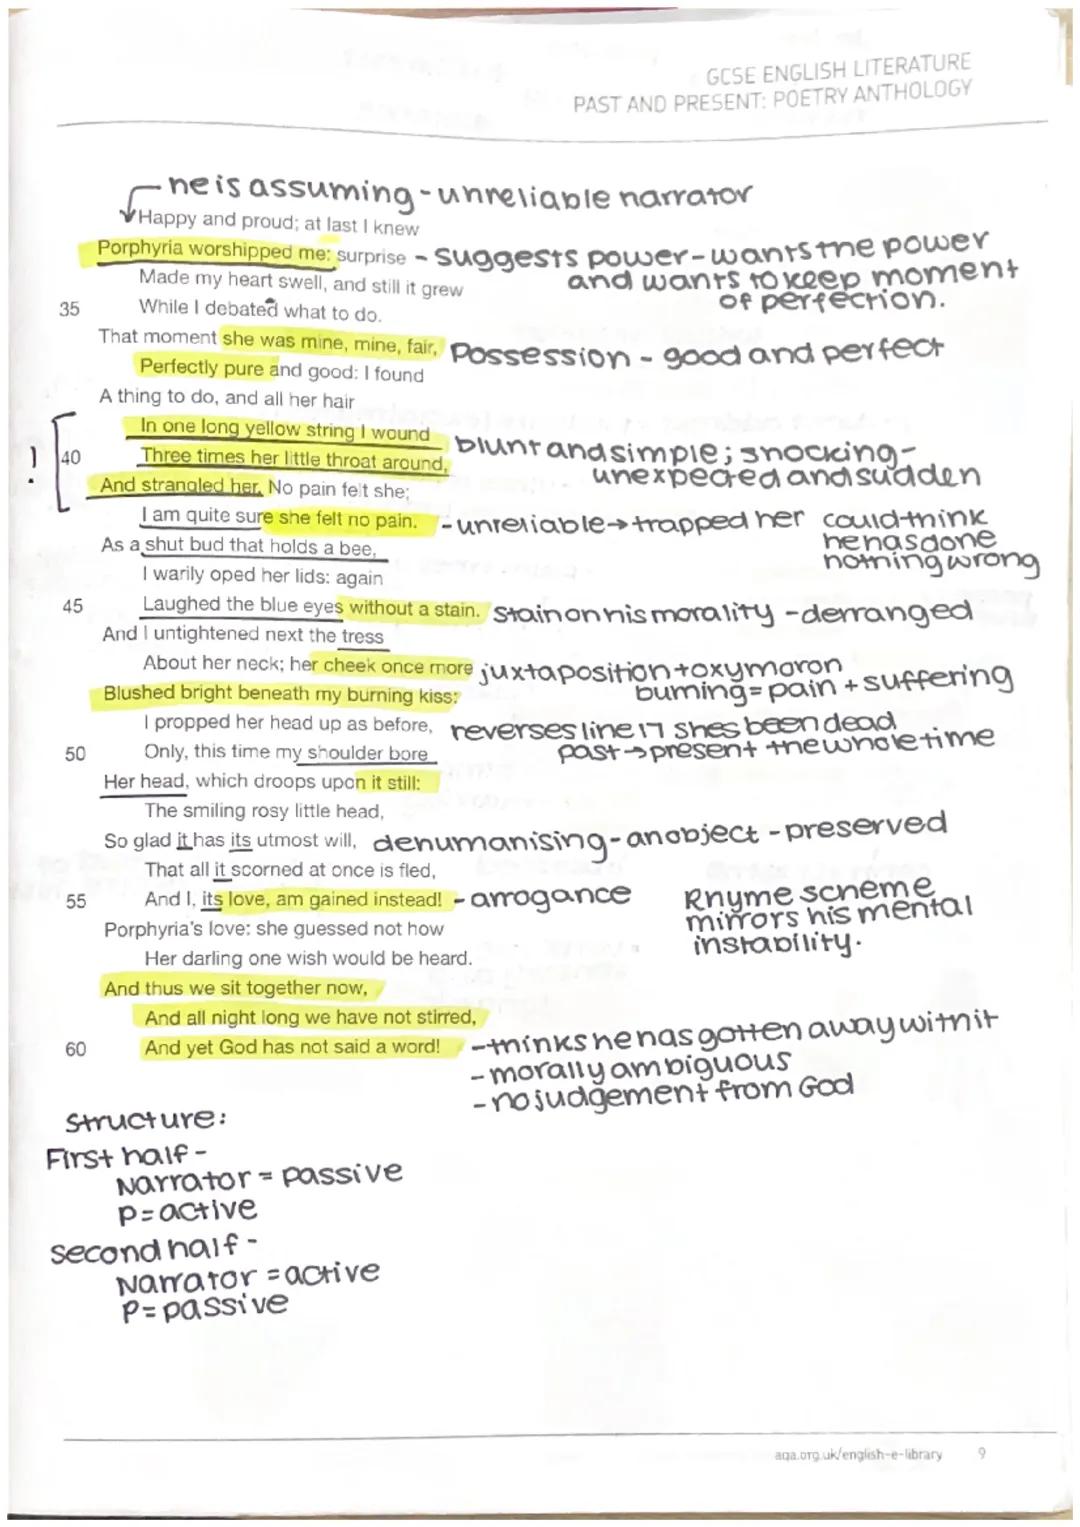 GCSE ENGLISH LITERATURE
PAST AND PRESENT: POETRY ANTHOLOGY
he is assuming - unreliable narrator
Happy and proud; at last I knew
Porphyria worshipped me: surprise - suggests power - wants the power
Made my heart swell, and still it grew and wants to keep moment
35 While I debated what to do. of perfection.
That moment she was mine, mine, fair, Possession - good and perfect
Perfectly pure and good: I found
A thing to do, and all her hair
In one long yellow string I wound blunt and simple; shocking -
! 40 Three times her little throat around, unexpected and sudden
And strangled her. No pain felt she;
I am quite sure she felt no pain. - unreliable → trapped her could think
As a shut bud that holds a bee, he has done
I warily oped her lids: again nothing wrong
45 Laughed the blue eyes without a stain. stain on his morality - derranged
And I untightened next the tress
About her neck; her cheek once more juxtaposition + oxymoron
Blushed bright beneath my burning kiss: burning = pain + suffering
I propped her head up as before, reverses line 17 shes been dead
50 Only, this time my shoulder bore past → present the whole time
Her head, which droops upon it still:
The smiling rosy little head,
So glad it has its utmost will, dehumanising - an object - preserved
That all it scorned at once is fled,
55 And I, its love, am gained instead! - arrogance Rhyme scheme
Porphyria's love: she guessed not how mirrors his mental
Her darling one wish would be heard. instability.
And thus we sit together now,
And all night long we have not stirred,
60 And yet God has not said a word! - thinks he has gotten away with it
- morally ambiguous
- no judgement from God
Structure:
First half -
Narrator = passive
P = active
second half -
Narrator = active
P = passive
aqa.org.uk/english-e-library 9